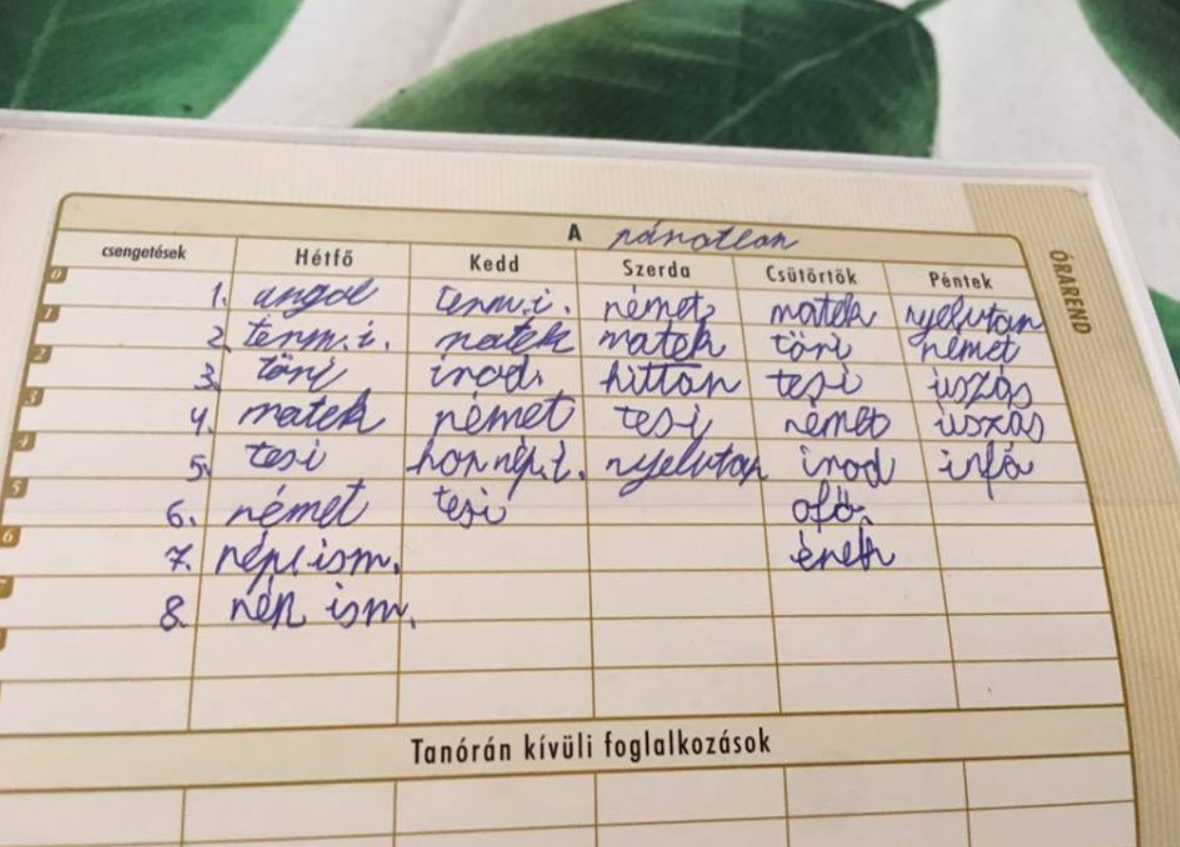 A páratlan
ÓRAREND
csengetések Hétfő Kedd Szerda Csütörtök Péntek
0
1. angol term.i. német matek nyelvtan
1
2. term.i. matek matek töri német
2
3. töri irod. hittan tesi úszás
3
4. matek német tesi német úszás
4
5. tesi hon nép.i. nyelvtan irod infó
5
6. német tesi ofő.
6
7. népi ism. ének
7
8. nép ism.
Tanórán kívüli foglalkozások